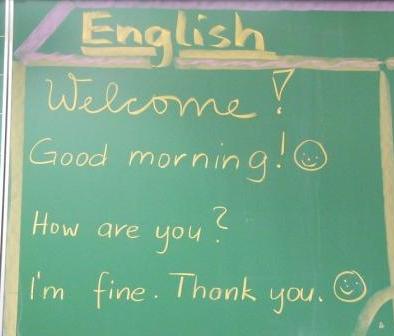 English
Welcome!
Good morning! ☺
How are you?
I'm fine. Thank you. ☺